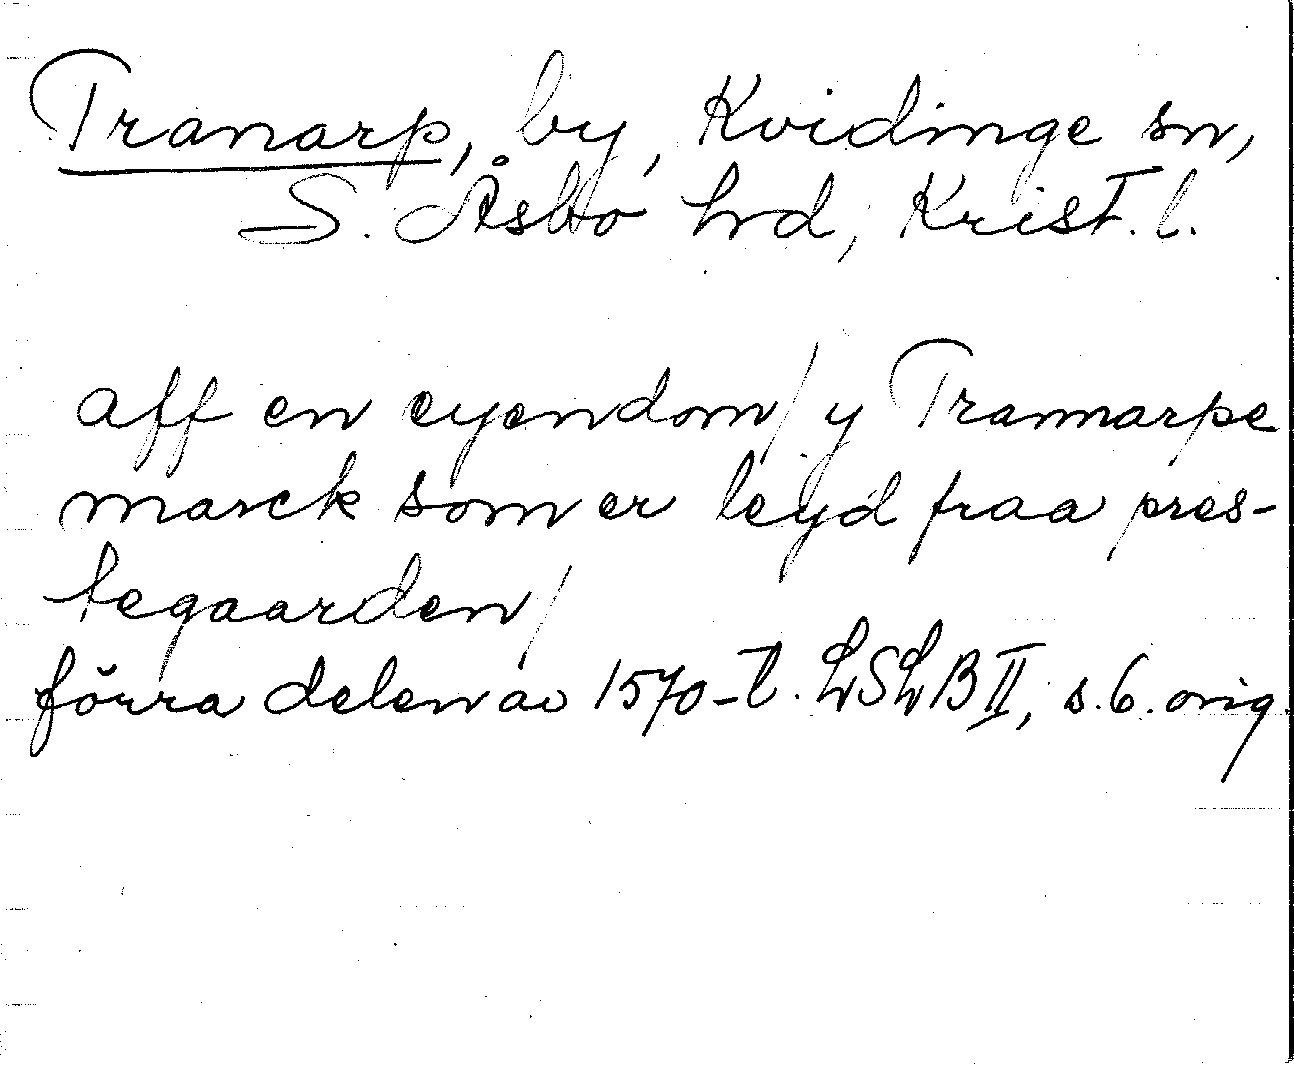 Tranarp, by, Kvidinge sn,
S. Åsbo hd, Krist. l.
aff en eyendom/ y Tranarpe
marck som er leyd fraa pres-
tegaarden/
förra delen av 1570-t. LSLB II, s. 6. orig.